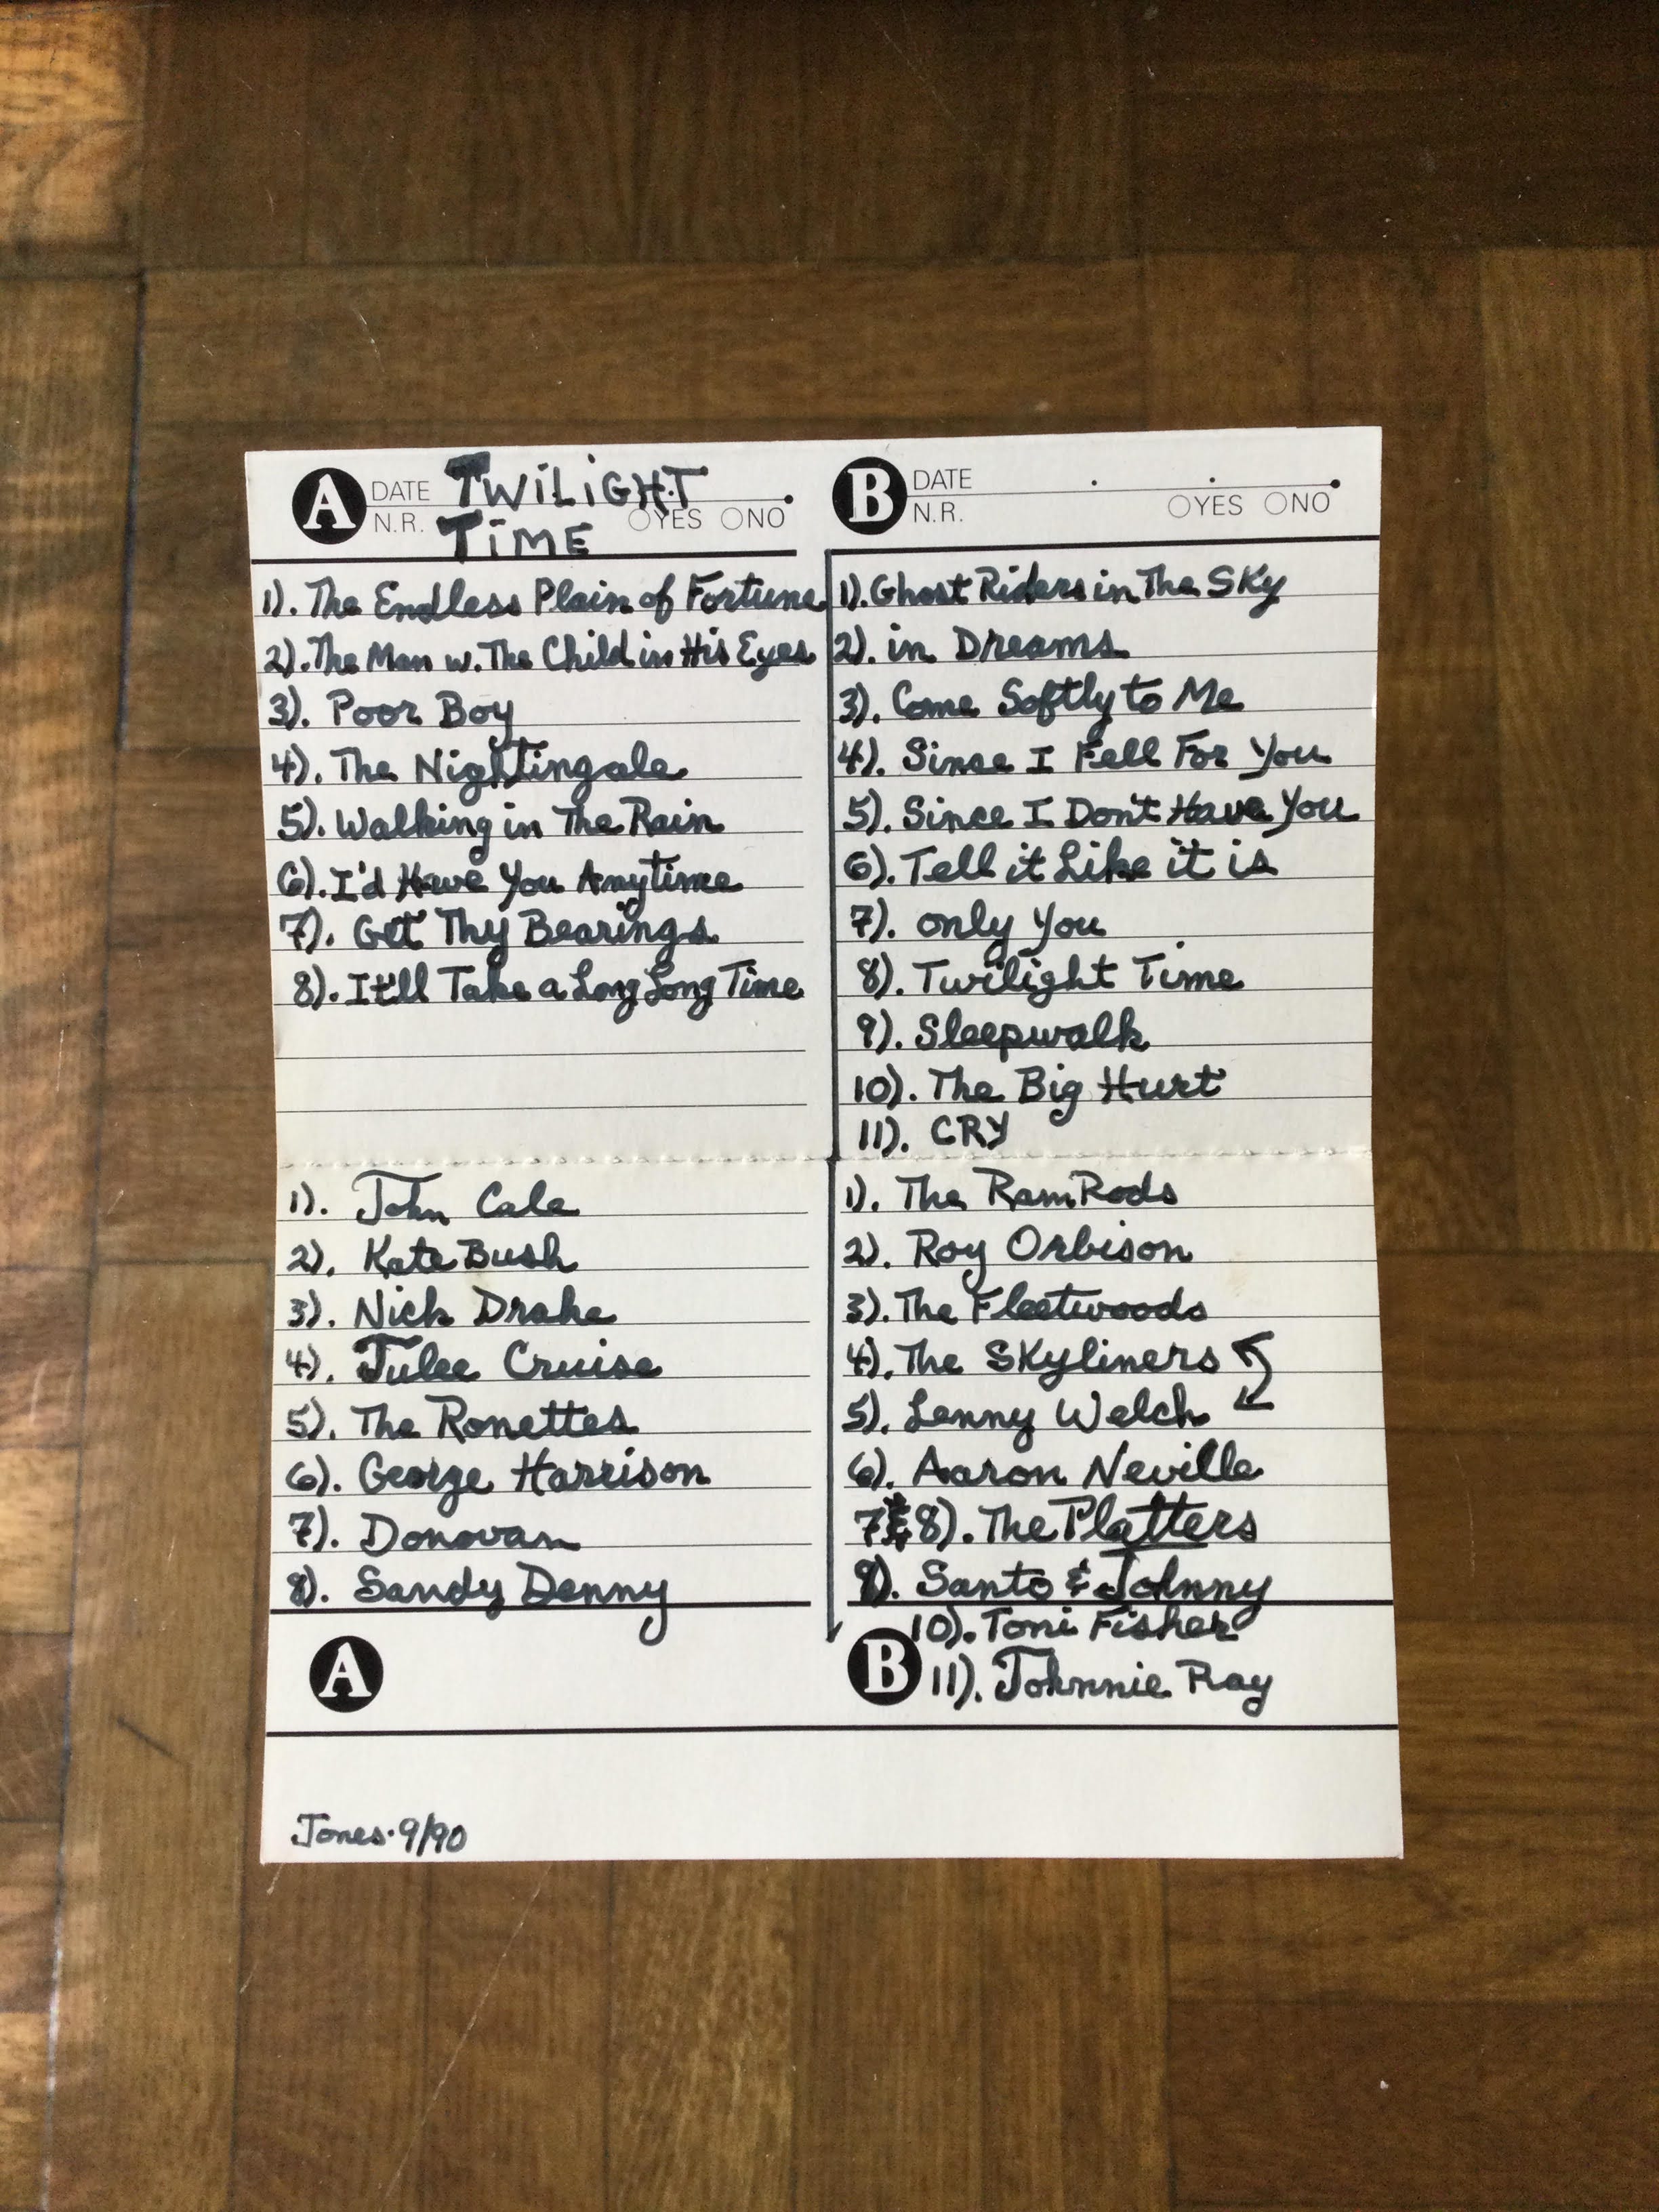 A DATE TWiLiGHT
N.R. TiME OYES ONO
1). The Endless Plain of Fortune
2). The Man w. The Child in His Eyes
3). Poor Boy
4). The Nightingale
5). Walking in The Rain
6). I'd Have You Anytime
7). Get Thy Bearings
8). It'll Take a Long Long Time
1). John Cale
2). Kate Bush
3). Nick Drake
4). Julee Cruise
5). The Ronettes
6). George Harrison
7). Donovan
8). Sandy Denny
A
B DATE
N.R. OYES ONO
1). Ghost Riders in The Sky
2). in Dreams
3). Come Softly to Me
4). Since I Fell For You
5). Since I Don't Have You
6). Tell it Like it is
7). only You
8). Twilight Time
9). Sleepwalk
10). The Big Hurt
11). CRY
1). The RamRods
2). Roy Orbison
3). The Fleetwoods
4). The Skyliners
5). Lenny Welch
6). Aaron Neville
7 & 8). The Platters
9). Santo & Johnny
10). Toni Fisher
B 11). Johnnie Ray
Jones · 9/90